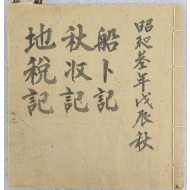 昭和叁年戊辰秋
船卜記
秋収記
地稅記